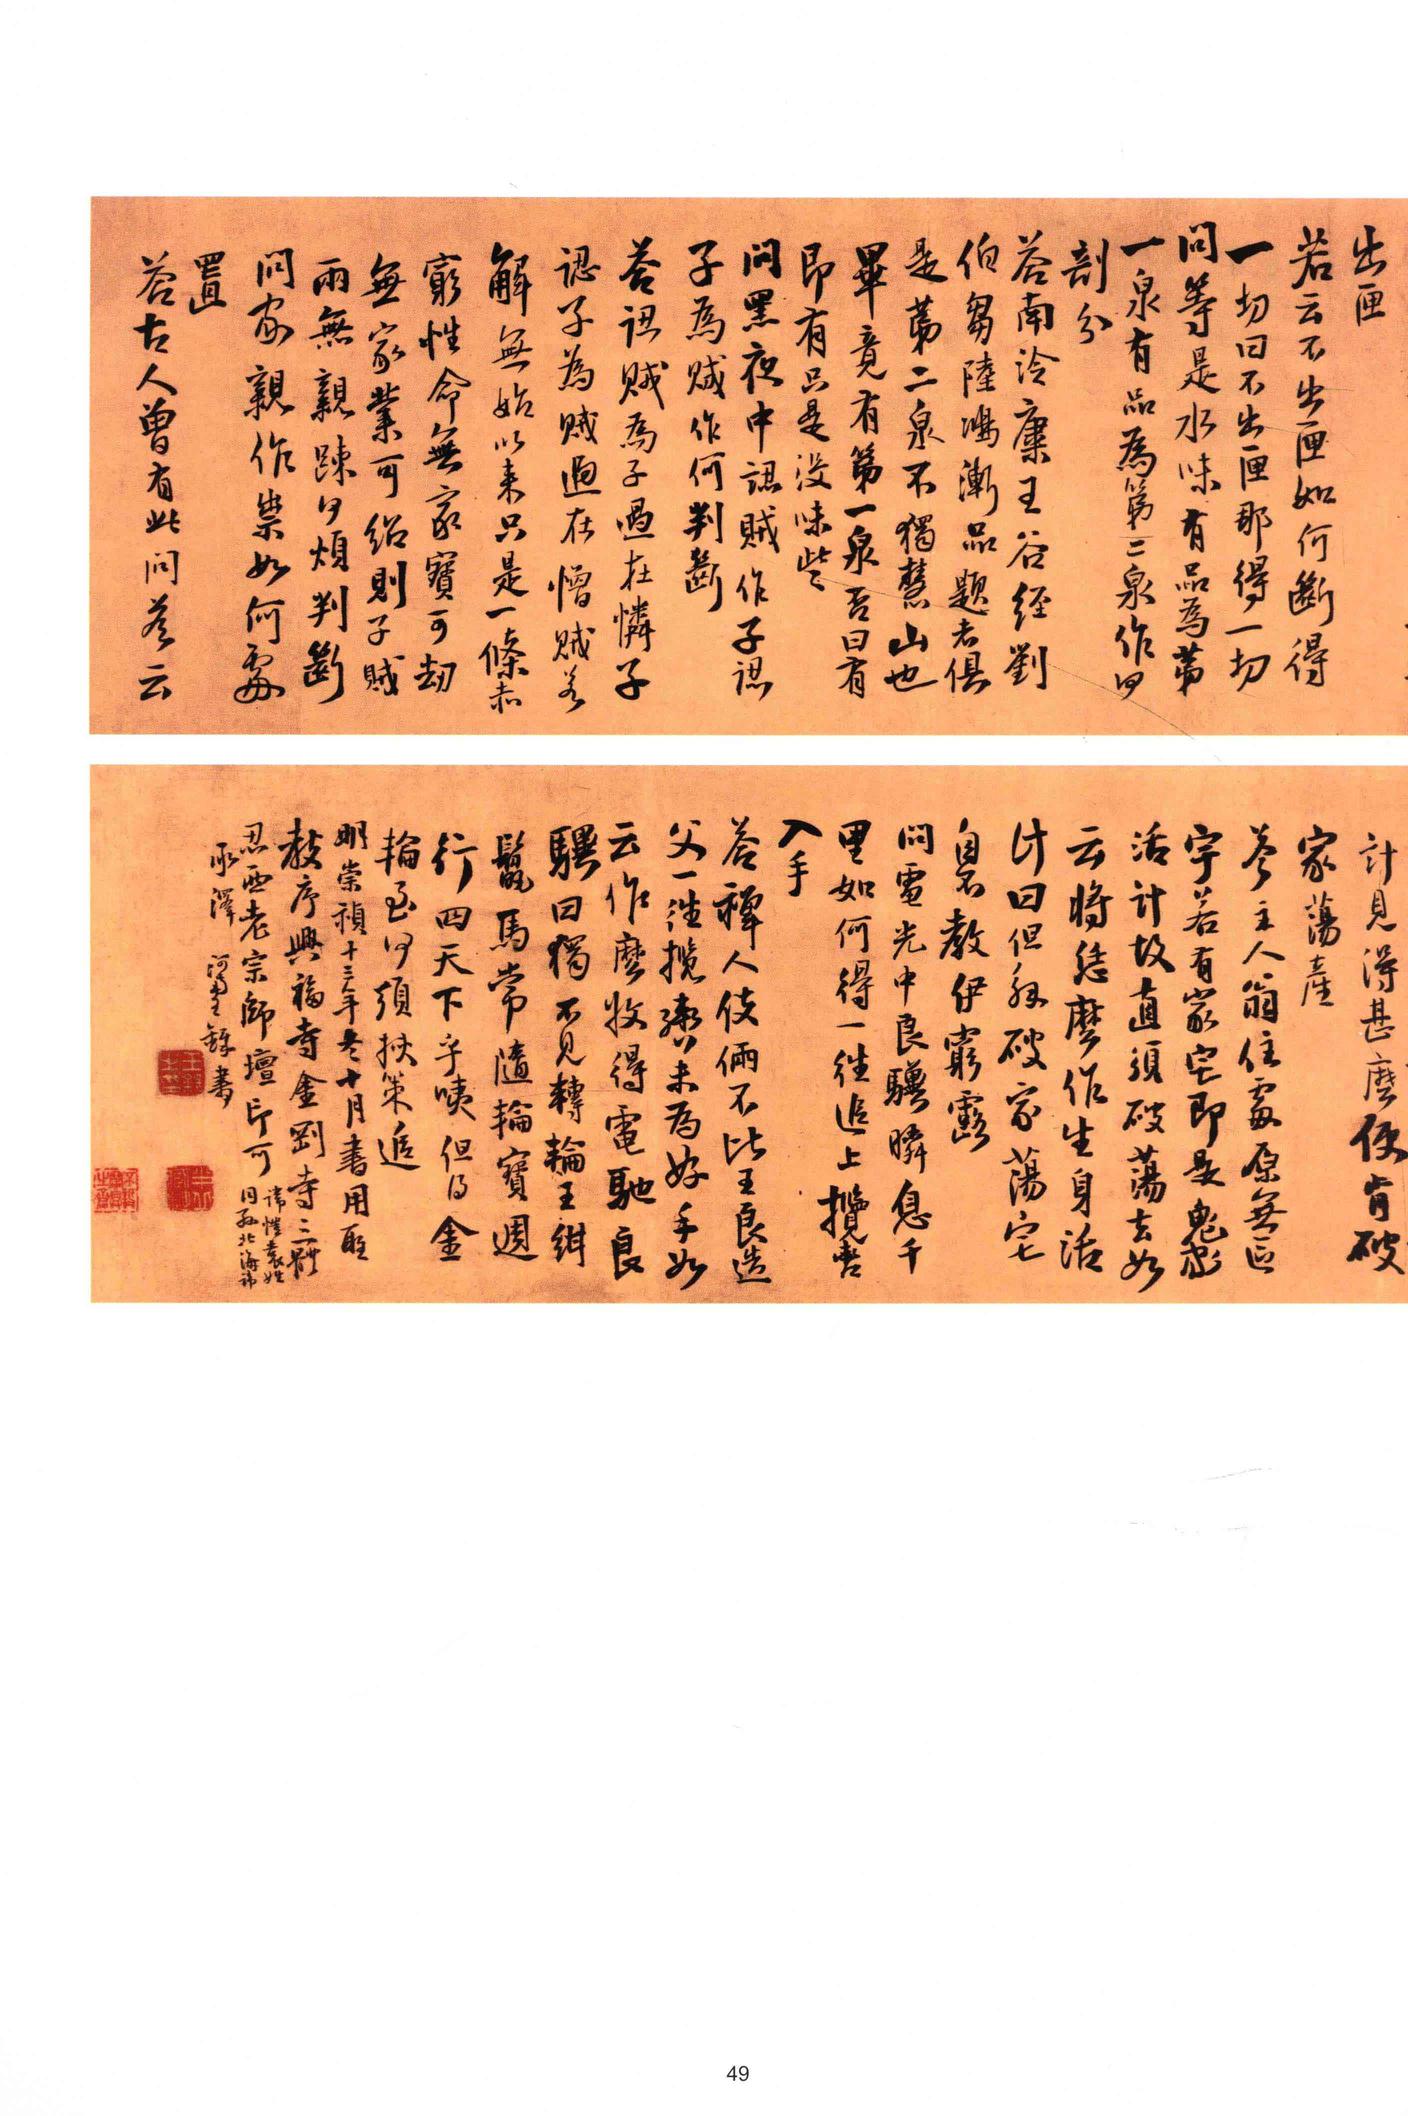 出匣
若云不出匣如何斷得
一切曰不出匣那得一切
問等是水味有品為第
一泉有品為第二泉作何
剖分
荅南泠廉王谷經劉
伯芻陸鴻漸品題者俱
是第二泉不獨慧山也
畢竟有第一泉否曰有
即有只是没味些
問黑夜中認賊作子認
子為賊作何判斷
荅認賊為子過在憐子
認子為賊過在憎賊若
解無始以来只是一條赤
窮性命無家寶可劫
無家業可紹則子賊
兩無親踈何煩判斷
問家親作祟如何處
置
荅古人曾有此問荅云
計見得甚麽便肯破
家蕩產
荅主人翁住處原無區
宇若有家宅即是鬼家
活計故直須破蕩去如
云將恁麽作生身活
計曰但能破家蕩宅
自不教伊窮露
問電光中良驥瞬息千
里如何得一往追上攬轡
入手
荅禪人伎倆不比王良造
父一往攬轡未為好手如
云作麽牧得電馳良
驥曰獨不見轉輪王紺
鬣馬常隨輪寶週
行四天下乎咦但得金
輪至何須挾策追
明崇禎十三年冬十月書用取
教序興福寺金剛寺三體
思西老宗師壇印可 諱愷袁姓
同孫北海諱
承澤 河南王鐸書